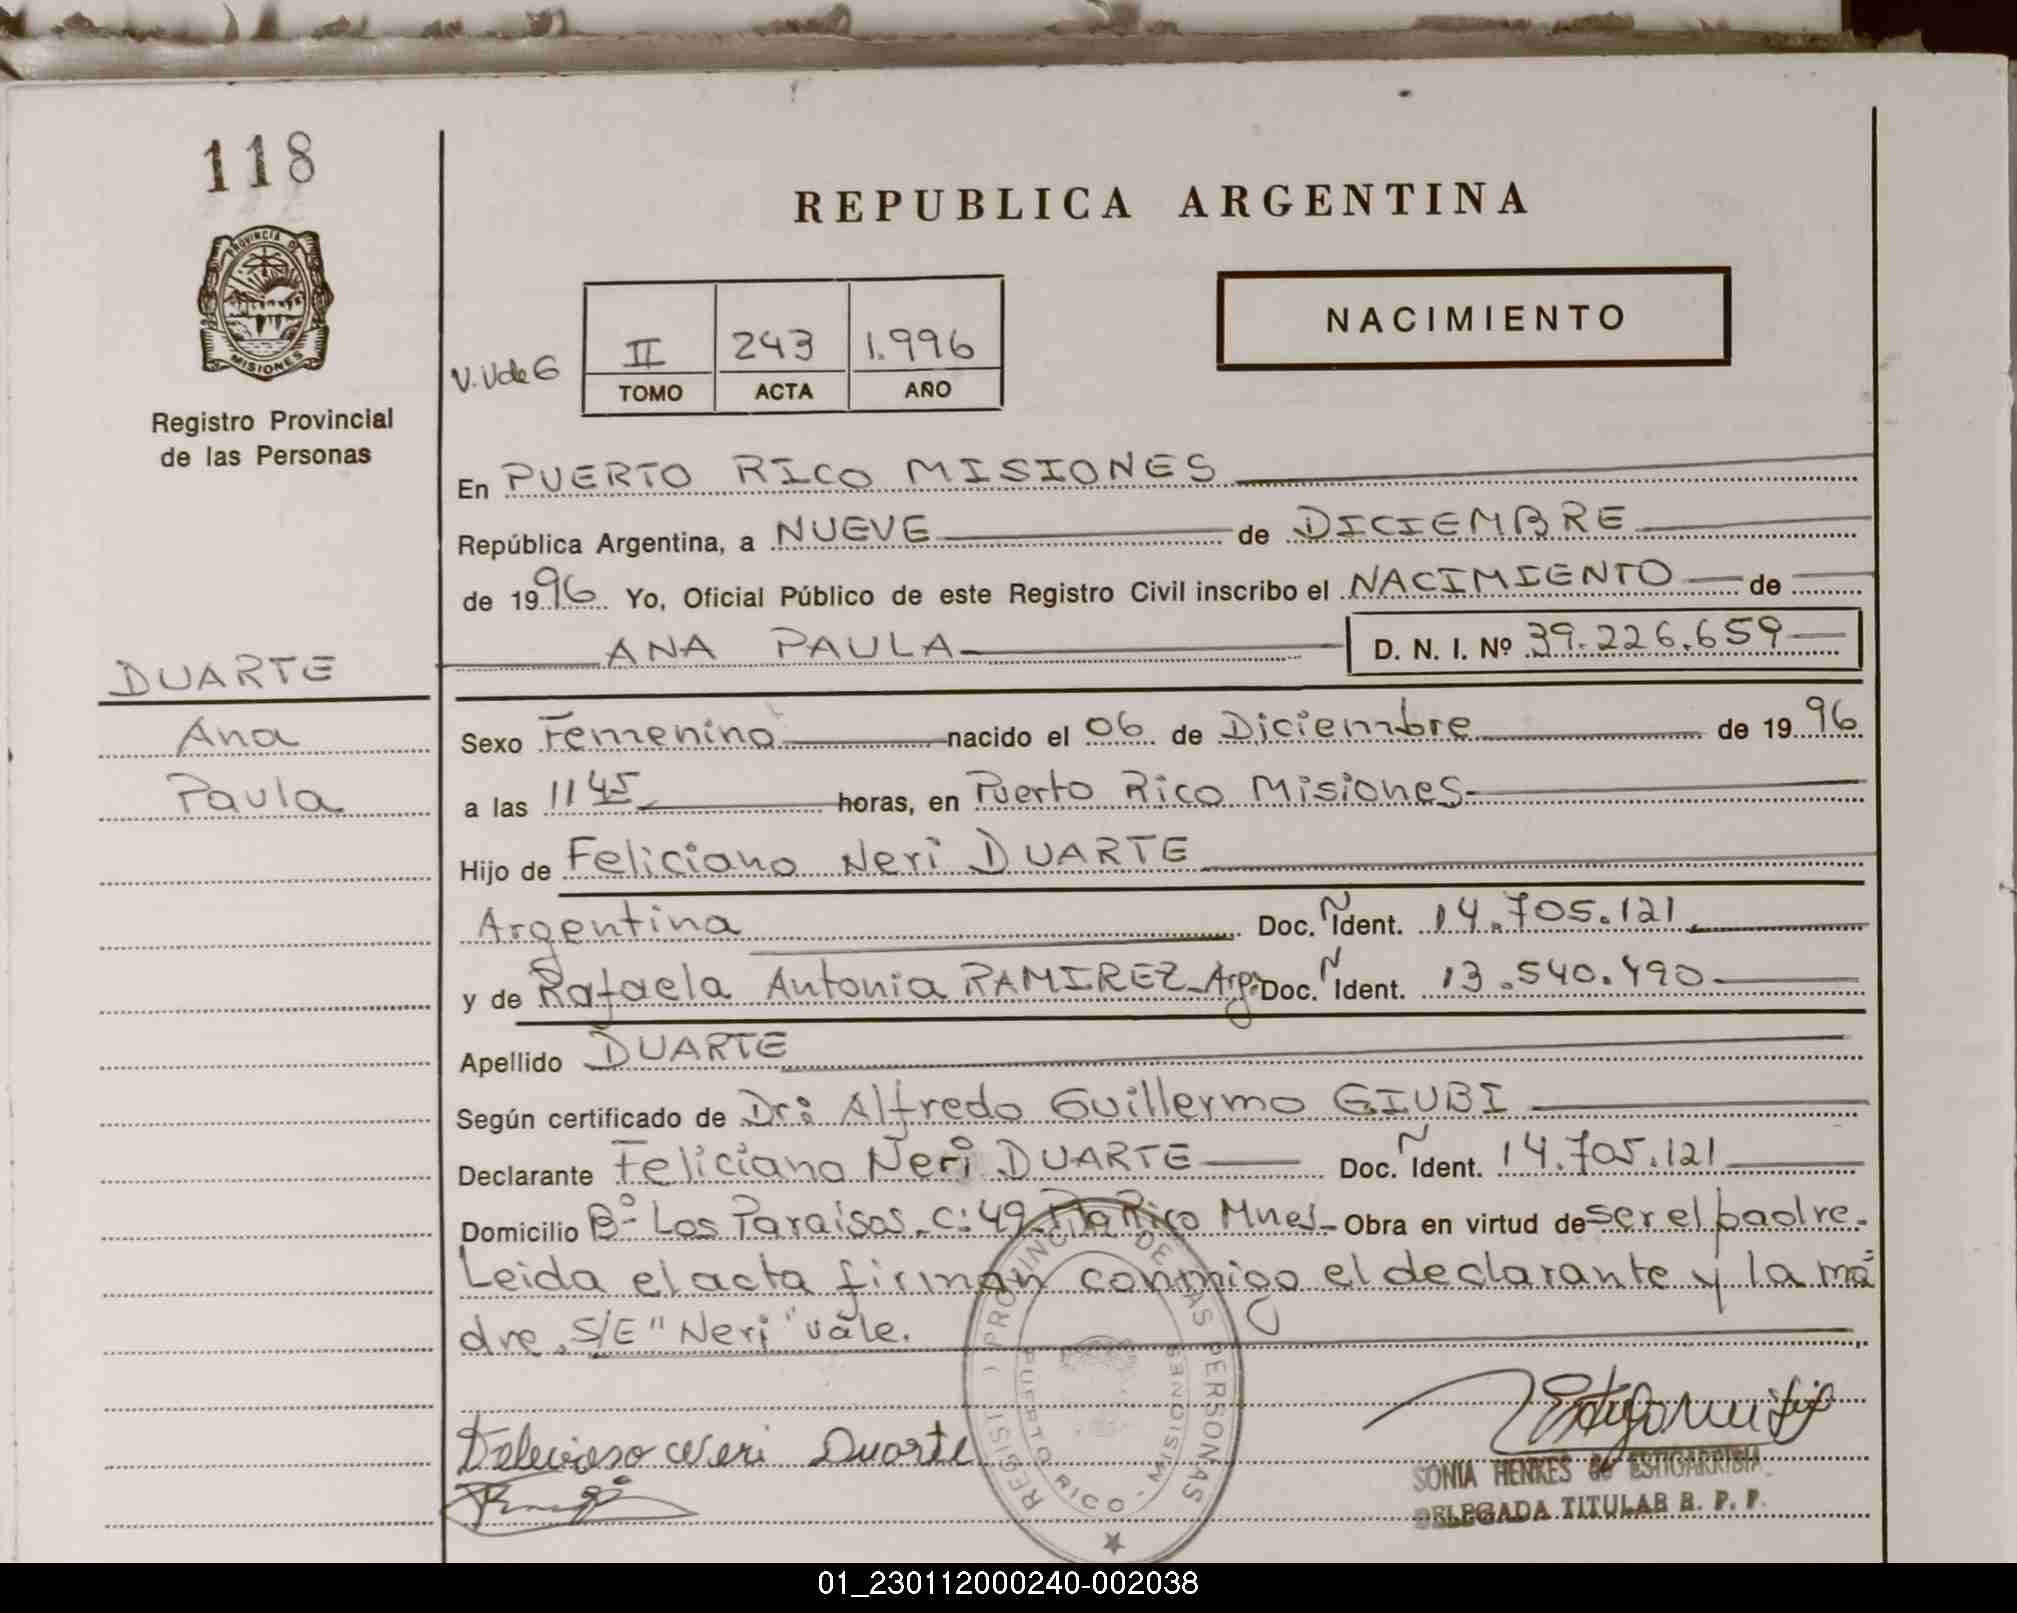 118
REPUBLICA ARGENTINA
PROVINCIA DE
MISIONES
Registro Provincial
de las Personas
NACIMIENTO
V.Vde G
II 243 1.996
TOMO ACTA AÑO
En PUERTO RICO MISIONES
República Argentina, a NUEVE de DICIEMBRE
de 1996 Yo, Oficial Público de este Registro Civil inscribo el NACIMIENTO de
ANA PAULA D. N. I. Nº 39.226.659
DUARTE
Ana
Paula
Sexo Femenino nacido el 06 de Diciembre de 1996
a las 1145 horas, en Puerto Rico Misiones
Hijo de Feliciano Neri DUARTE
Argentina Doc. Ñ Ident. 14.705.121
y de Rafaela Antonia RAMIREZ Arg. Doc. Ñ Ident. 13.540.490
Apellido DUARTE
Según certificado de Dr: Alfredo Guillermo GIUBI
Declarante Feliciano Neri DUARTE Doc. Ñ Ident. 14.705.121
Domicilio Bº Los Paraisos. C:49 Pto Rico Mnes Obra en virtud de ser el padre.
Leida el acta firman conmigo el declarante y la ma=
dre. S/E "Neri" vale.
REGIST PROVINCIAL DE LAS PERSONAS
PUERTO RICO - MISIONES
Neri Duarte
SONIA HENKES de ESTIGARRIBIA
DELEGADA TITULAR R. P. P.
01_230112000240-002038